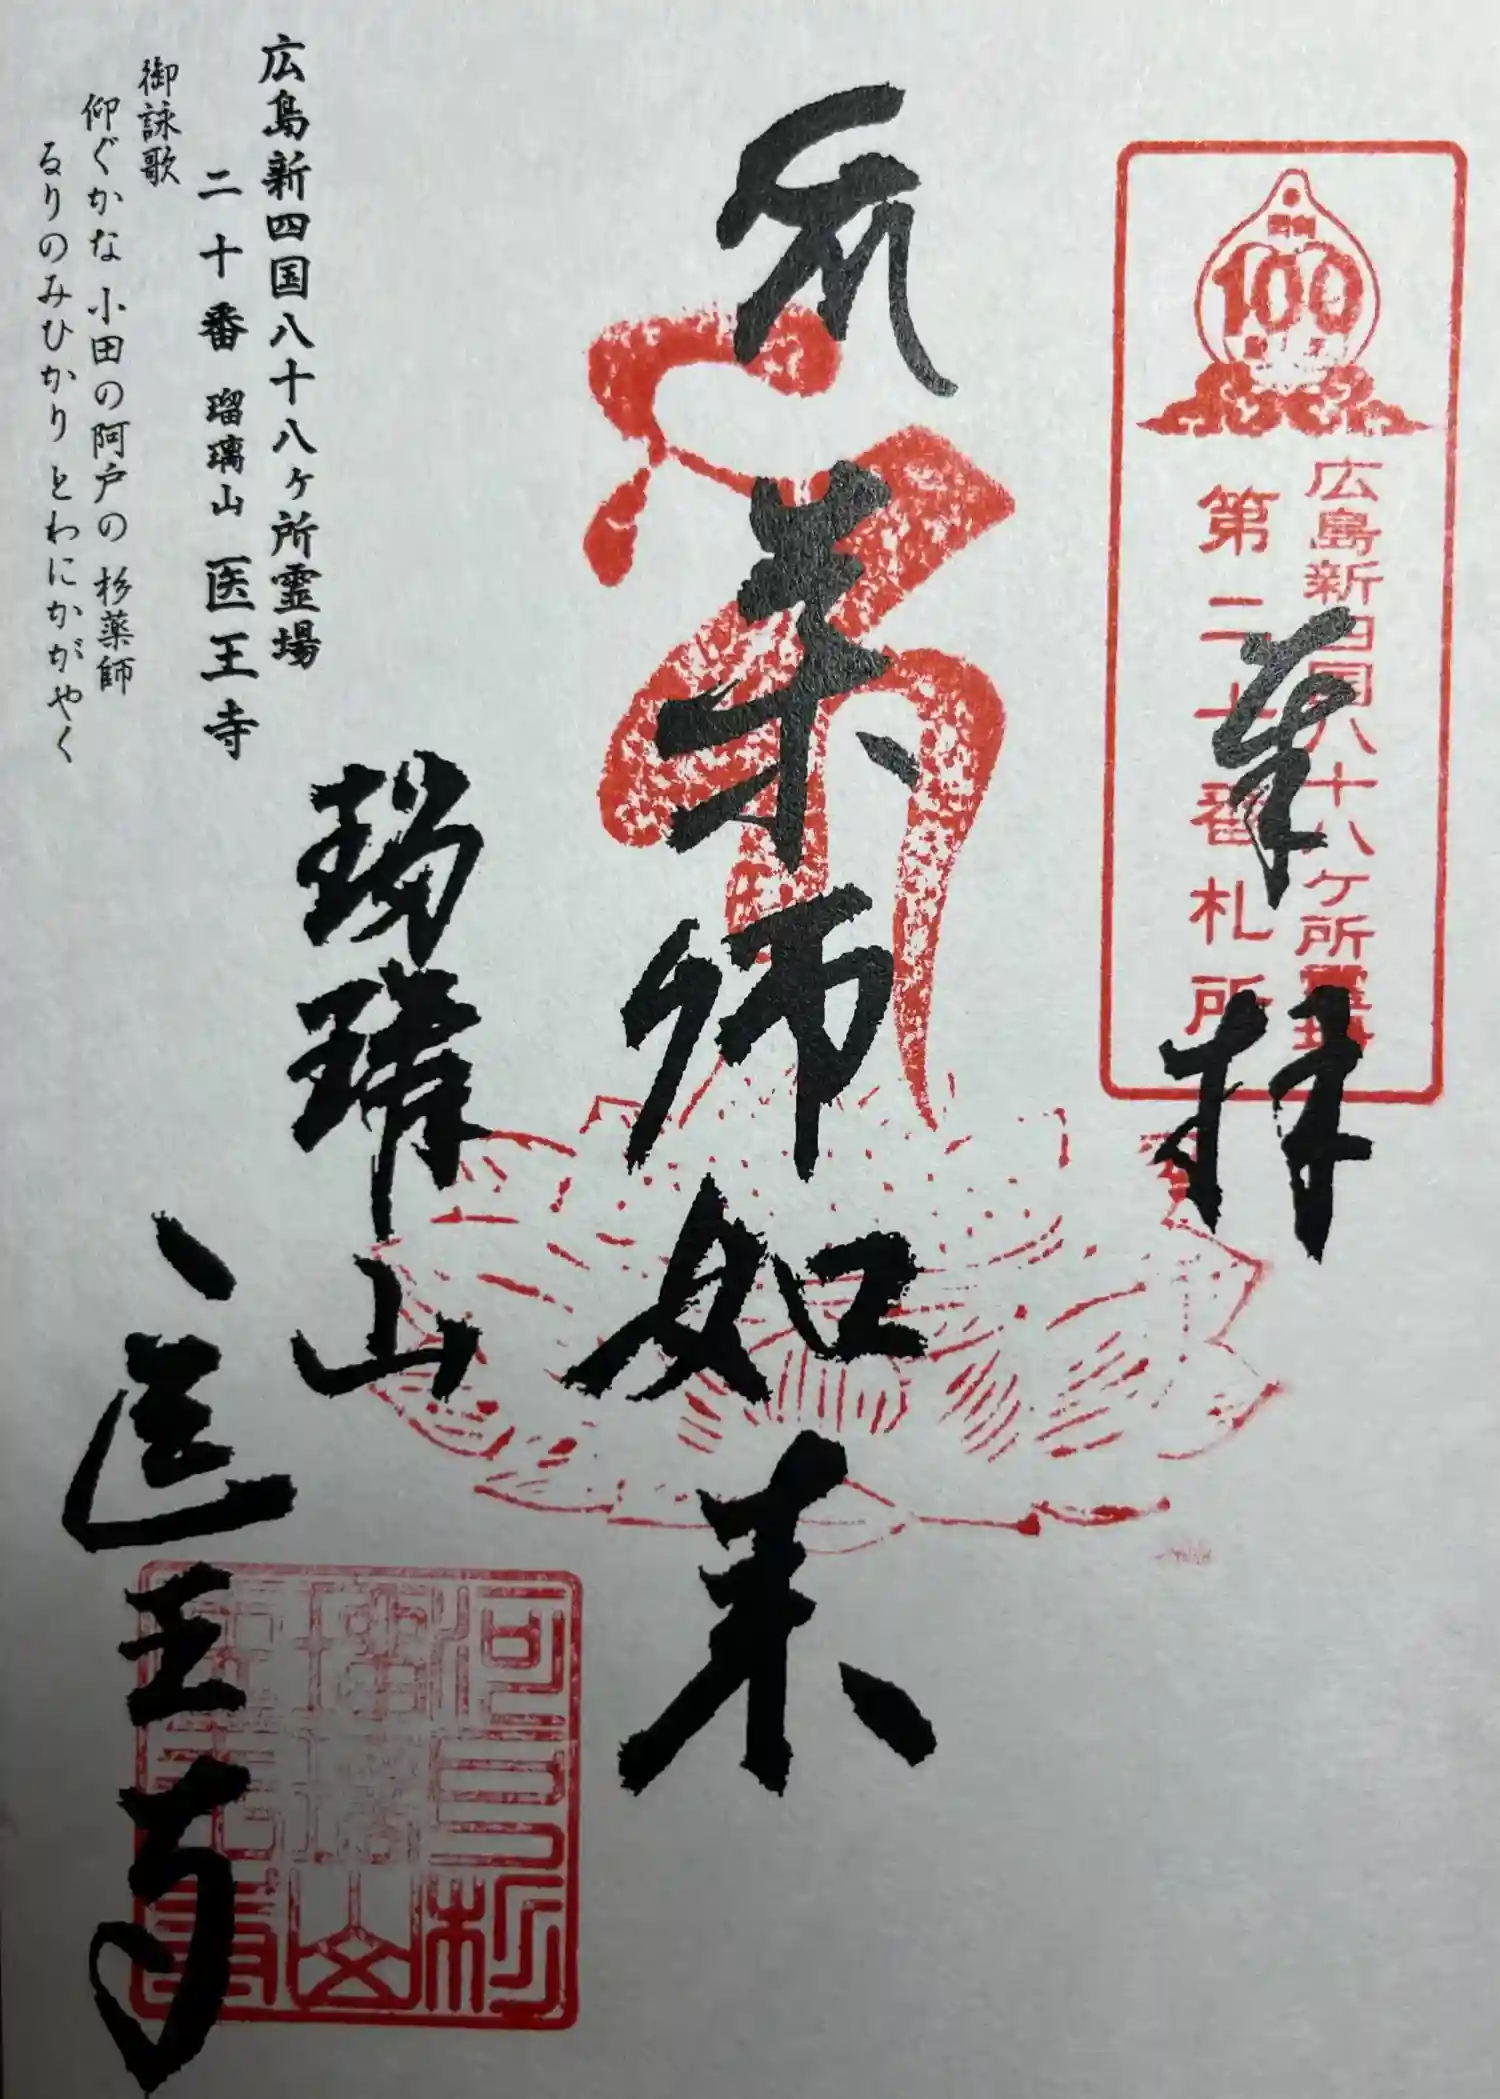 奉拝
100
広島新四国八十八ヶ所霊場
第二十番札所
薬師如来
瑠璃山
医王寺
広島新四国八十八ヶ所霊場
二十番 瑠璃山 医王寺
御詠歌
仰ぐかな 小田の阿戸の 杉薬師
るりのみひかり とわにかがやく